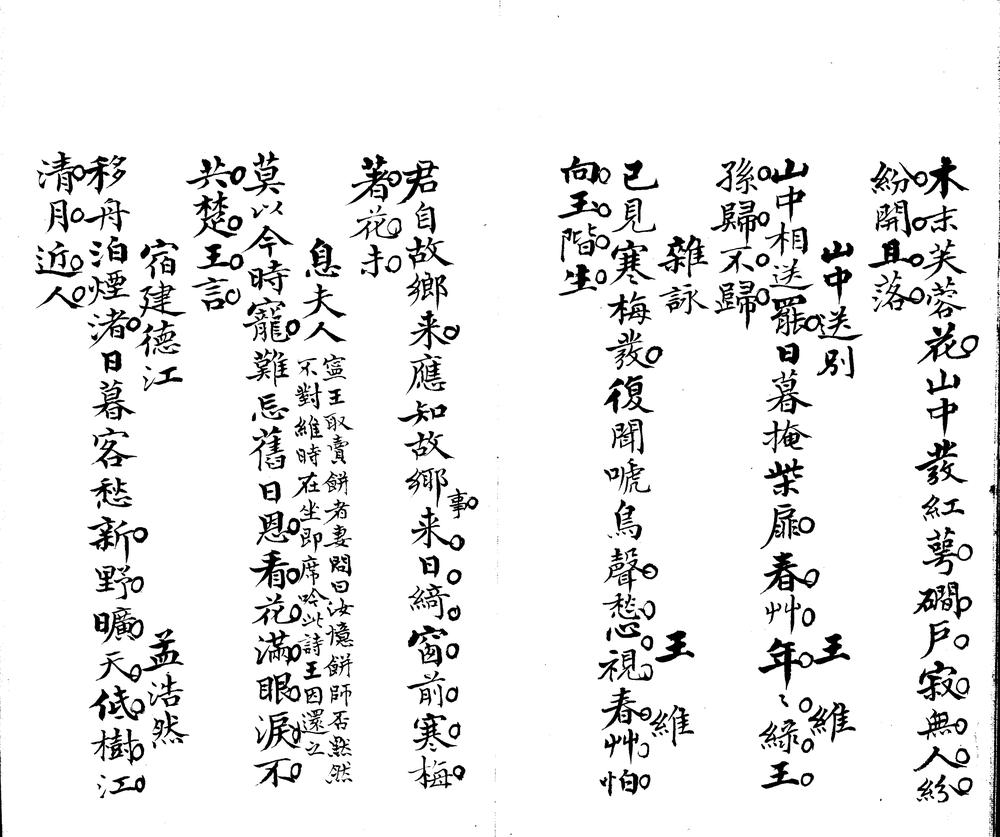 木末芙蓉花山中發紅萼磵戶寂無人紛
紛開且落
山中送別
王維
山中相送罷日暮掩柴扉春艸年〻綠王
孫歸不歸
雜詠
王維
已見寒梅發復聞啼鳥聲愁心視春艸怕
向玉階生
君自故鄉来應知故鄉事来日綺窗前寒梅
著花未
息夫人
寧王取賣餅者妻問曰汝憶餅師否黙然
不對維時在坐即席吟此詩王因還之
莫以今時寵難忘舊日恩看花滿眼淚不
共楚王言
宿建德江
孟浩然
移舟泊煙渚日暮客愁新野曠天低樹江
清月近人